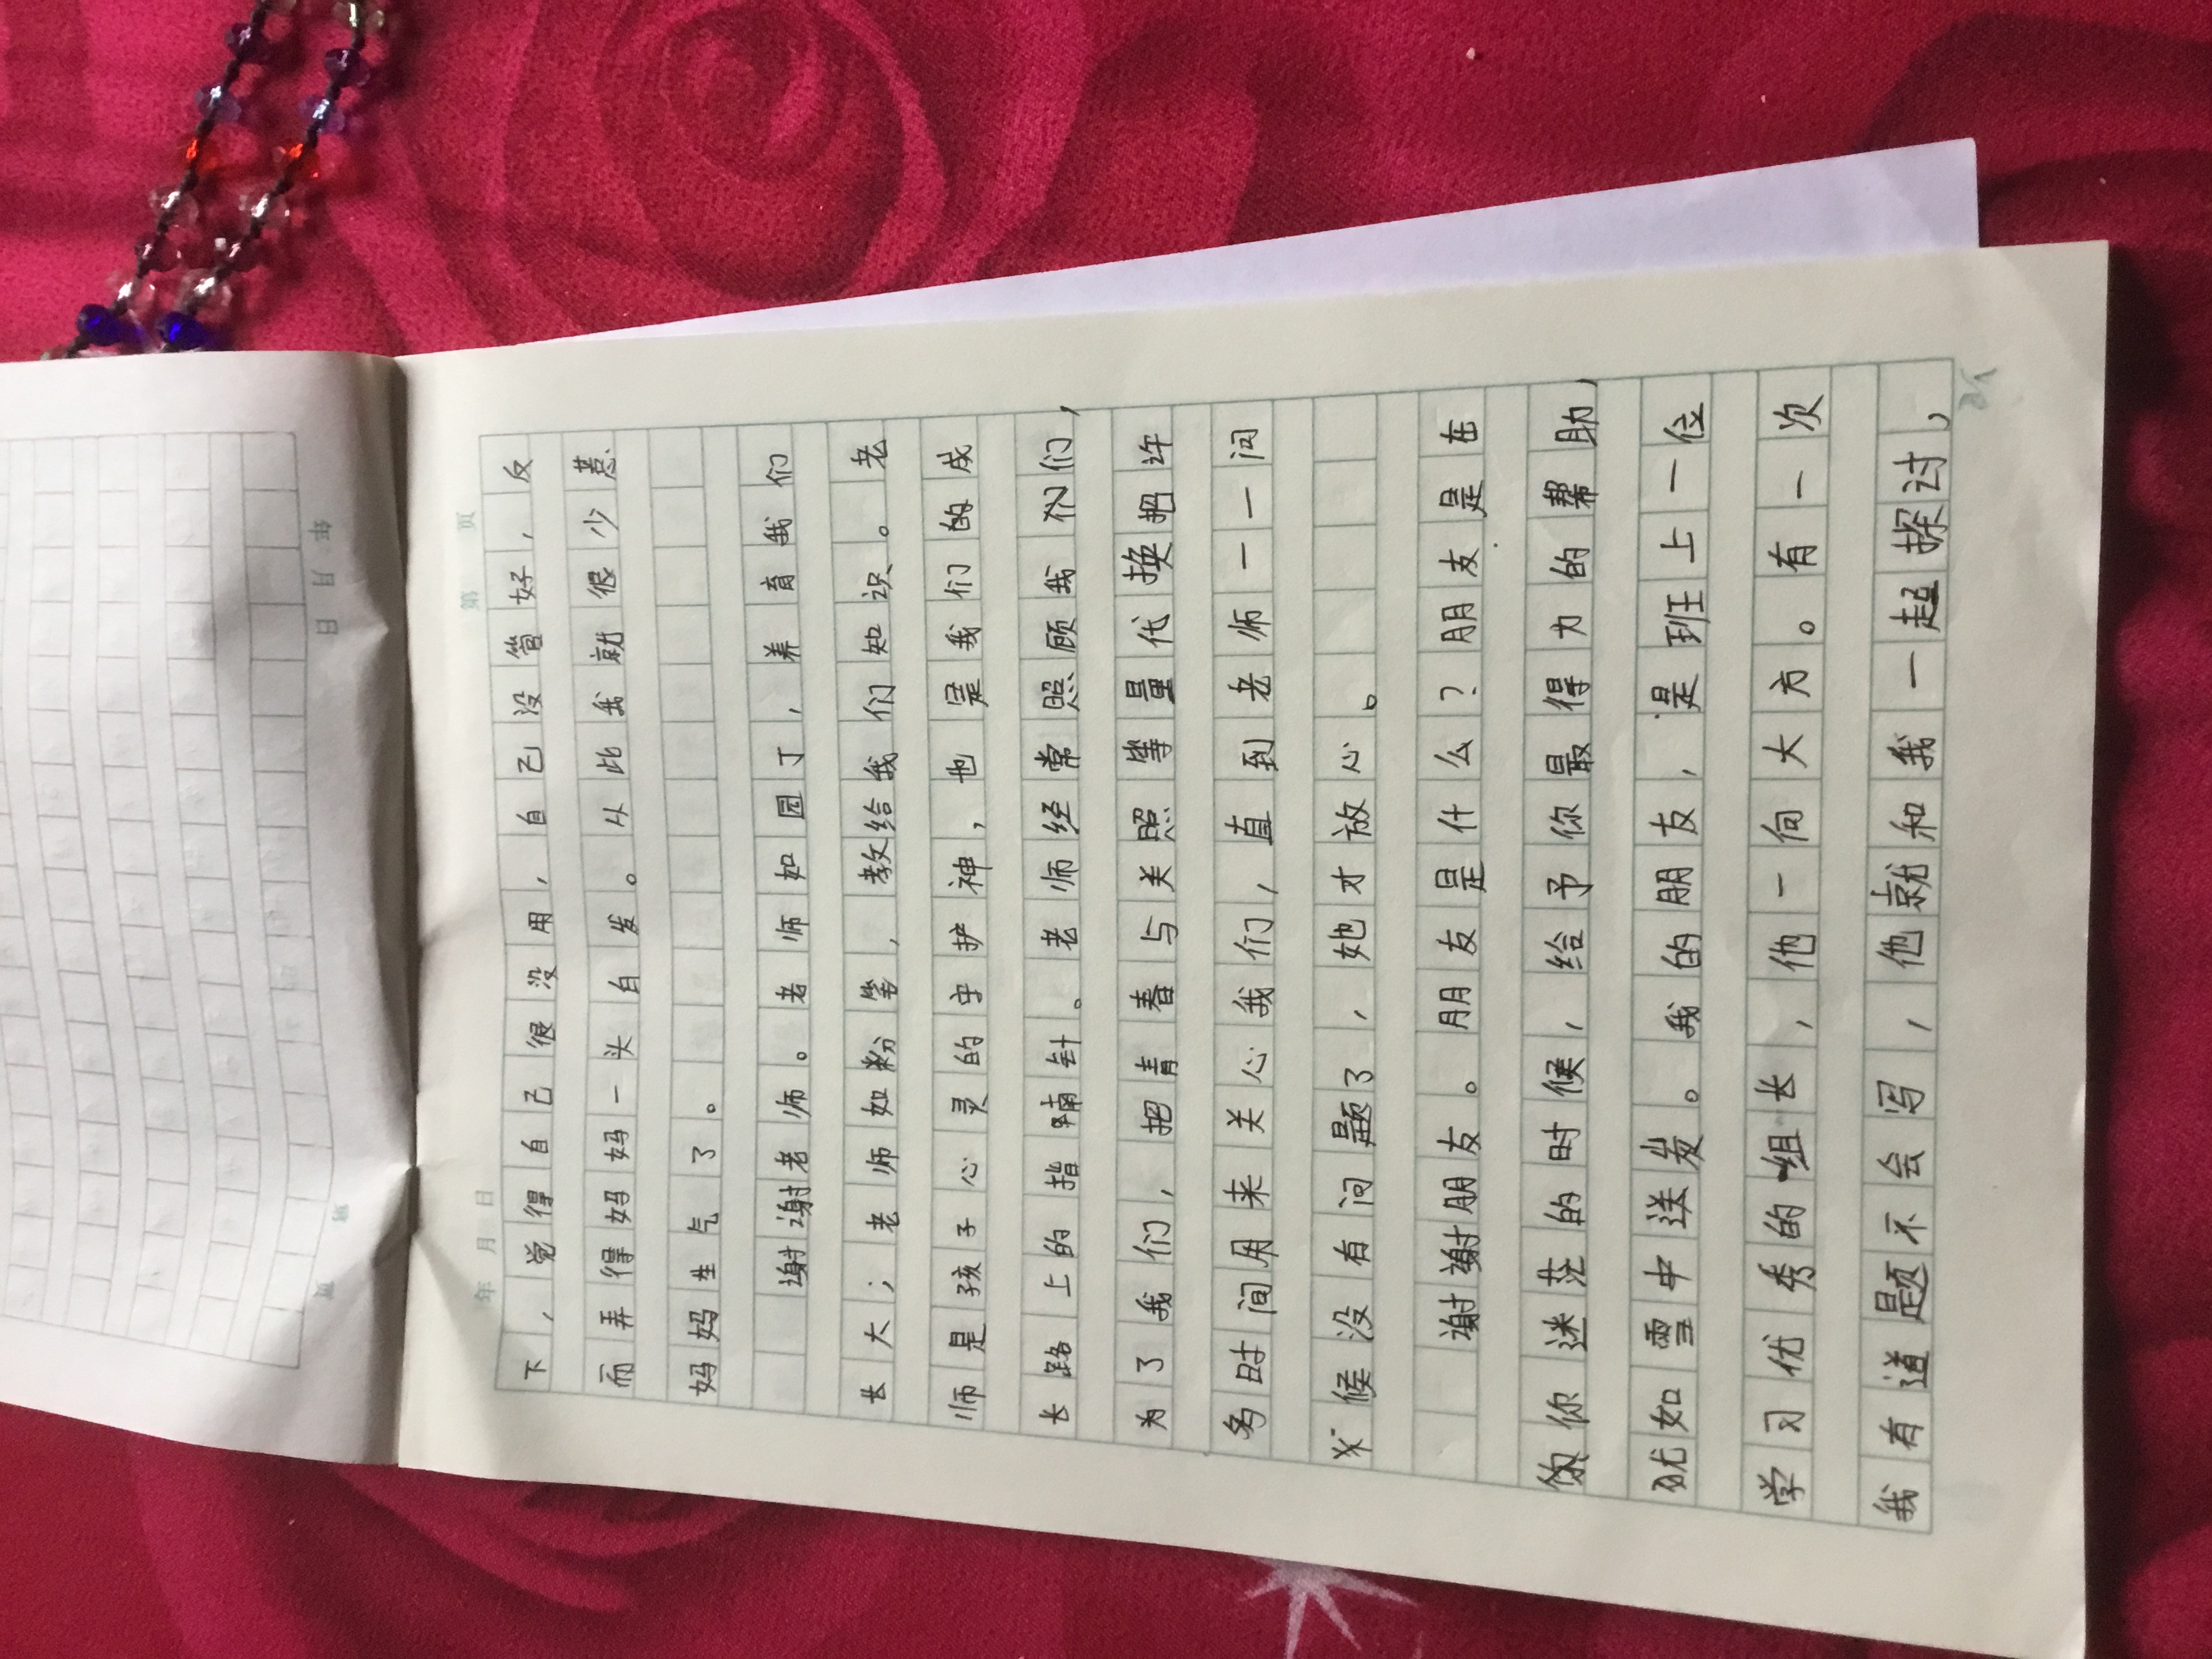 年 月 日 第 页
下，觉得自己很没用，自己没管好，反
而弄得妈妈一头白发。从此我就很少惹
妈妈生气了。
谢谢老师。老师如园丁，养育我们
长大；老师如粉笔，教给我们知识。老
师是孩子心灵的守护神，也是我们的成
长路上的指南针。老师经常照顾我们们，
为了我们，把青春与关照等量代换把许
多时间用来关心我们，直到老师一一问
候没有问题了，她才放心。
谢谢朋友。朋友是什么？朋友是在
你你迷茫的时候，给予你最得力的帮助，
犹如雪中送发。我的朋友，是班上一位
学习优秀的组长，他一向大方。有一次
我有道题不会写，他就和我一起探讨，
年 月 日
页